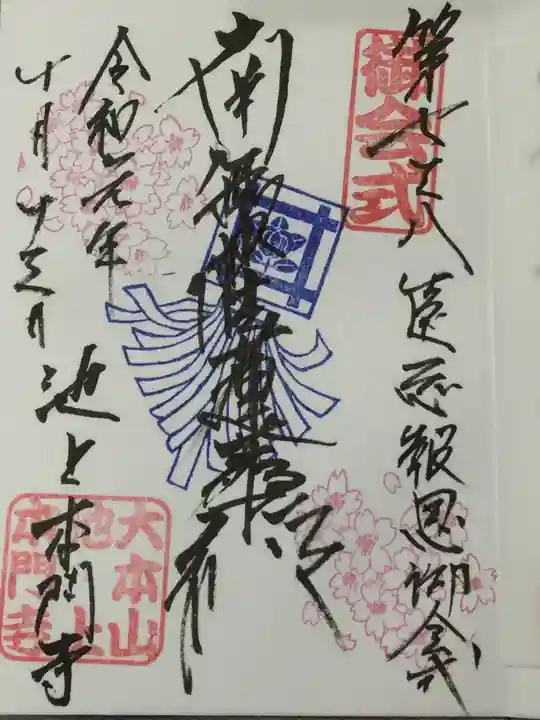 御会式
第七卅八遠忌報恩御会式
南無妙法蓮華経
令和元年
十月十三日
池上本門寺
大本山
池上
本門寺